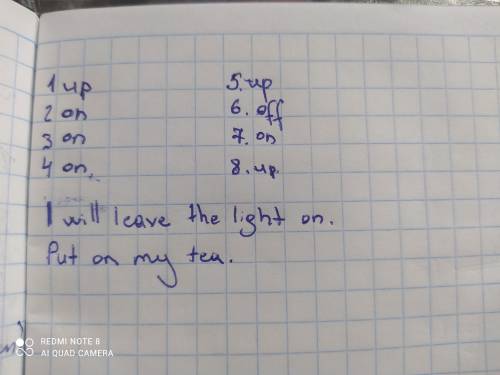 1 up
2 on
3 on
4 on.
5. up
6. off
7. on
8. up
I will leave the light on.
Put on my tea.
REDMI NOTE 8
AI QUAD CAMERA